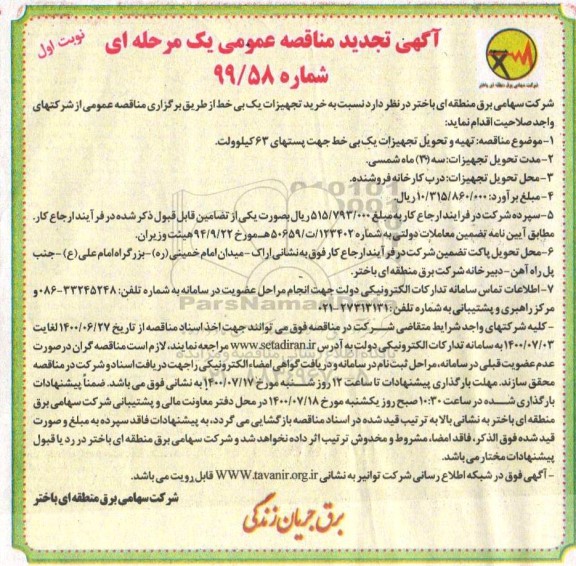 آگهی تجدید مناقصه عمومی یک مرحله ای
نوبت اول
شماره ۹۹/۵۸
شرکت سهامی برق منطقه ای باختر
شرکت سهامی برق منطقه ای باختر در نظر دارد نسبت به خرید تجهیزات یک بی خط از طریق برگزاری مناقصه عمومی از شرکتهای
واجد صلاحیت اقدام نماید:
۱-موضوع مناقصه: تهیه و تحویل تجهیزات یک بی خط جهت پستهای ۶۳ کیلوولت.
۲-مدت تحویل تجهیزات: سه (۳) ماه شمسی.
۳-محل تحویل تجهیزات: درب کارخانه فروشنده.
۴-مبلغ برآورد: ۱۰/۳۱۵/۸۶۰/۰۰۰ ریال.
۵-سپرده شرکت در فرایند ارجاع کار به مبلغ ۵۱۵/۷۹۳/۰۰۰ ریال بصورت یکی از تضامین قابل قبول ذکر شده در فرآیند ارجاع کار.
مطابق آیین نامه تضمین معاملات دولتی به شماره ۱۲۳۴۰۲/ت۵۰۶۵۹هـ مورخ ۹۴/۹/۲۲ هیئت وزیران.
۶-محل تحویل پاکت تضمین شرکت در فرآیند ارجاع کار فوق به نشانی اراک -میدان امام خمینی (ره)- بزرگراه امام علی (ع) - جنب
پل راه آهن - دبیرخانه شرکت برق منطقه ای باختر.
۷-اطلاعات تماس سامانه تدارکات الکترونیکی دولت جهت انجام مراحل عضویت در سامانه به شماره تلفن: ۳۳۲۴۵۲۴۸-۰۸۶ و
مرکز راهبری و پشتیبانی به شماره تلفن: ۲۷۳۱۳۱۳۱-۰۲۱
-کلیه شرکتهای واجد شرایط متقاضی شرکت در مناقصه فوق می توانند جهت اخذ اسناد مناقصه از تاریخ ۱۴۰۰/۰۶/۲۷ لغایت
۱۴۰۰/۰۷/۰۳ به سامانه تدارکات الکترونیکی دولت به آدرس www.setadiran.ir مراجعه نمایند، لازم است مناقصه گران در صورت
عدم عضویت قبلی در سامانه، مراحل ثبت نام در سامانه و دریافت گواهی امضاء الکترونیکی را جهت دریافت اسناد و شرکت در مناقصه
محقق سازند. مهلت بارگذاری پیشنهادات تا ساعت ۱۲ روز شنبه مورخ ۱۴۰۰/۰۷/۱۷ به نشانی فوق می باشد. ضمناً پیشنهادات
بارگذاری شده در ساعت ۱۰:۳۰ صبح روز یکشنبه مورخ ۱۴۰۰/۰۷/۱۸ در محل دفتر معاونت مالی و پشتیبانی شرکت سهامی برق
منطقه ای باختر به نشانی بالا به ترتیب قید شده در اسناد مناقصه بازگشایی می گردد، به پیشنهادات فاقد سپرده به مبلغ و صورت
قید شده فوق الذکر، فاقد امضا، مشروط و مخدوش ترتیب اثر داده نخواهد شد و شرکت سهامی برق منطقه ای باختر در رد یا قبول
پیشنهادات مختار می باشد.
-آگهی فوق در شبکه اطلاع رسانی شرکت توانیر به نشانی WWW.tavanir.org.ir قابل رویت می باشد.
شرکت سهامی برق منطقه ای باختر
برق جریان زندگی
ParsNamadData